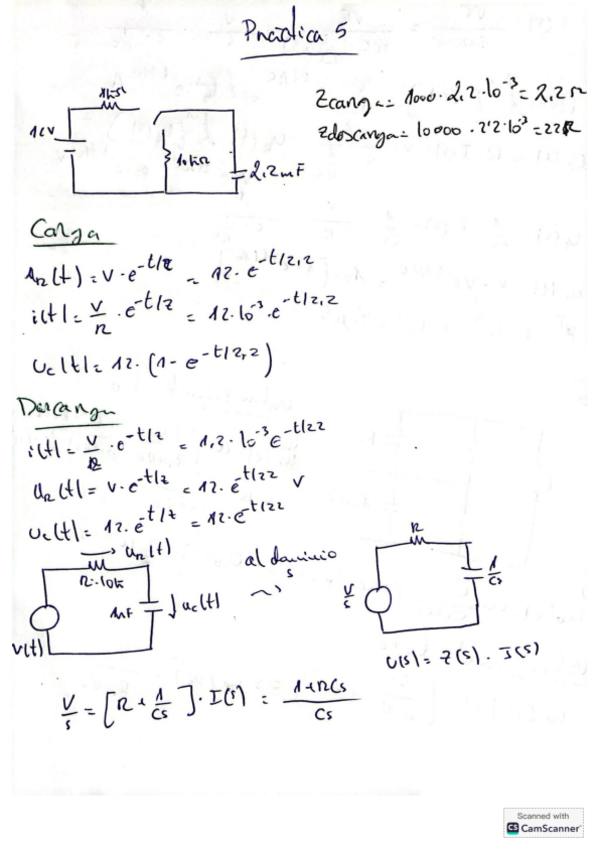 Práctica 5
1kΩ
12V
10kΩ
2,2mF
Zcarga = 1000 · 2,2 · 10⁻³ = 2,2 Ω
Zdescarga = 10000 · 2'2 · 10⁻³ = 22
Carga
u_R(t) = V · e^{-t/τ} = 12 · e^{-t/2,2}
i(t) = V/R · e^{-t/τ} = 12 · 10⁻³ · e^{-t/2,2}
u_c(t) = 12 · (1 - e^{-t/2,2})
Descarga
i(t) = V/R · e^{-t/τ} = 1,2 · 10⁻³ e^{-t/22}
u_R(t) = V · e^{-t/τ} = 12 · e^{-t/22} V
u_c(t) = 12 · e^{-t/τ} = 12 · e^{-t/22}
→ u_R(t)
R = 10k
1nF
↓ u_c(t)
V(t)
al dominio
s
R
1/Cs
V/s
U(s) = Z(s) · I(s)
V/s = [R + 1/Cs] · I(s) = (1+RCs)/Cs
Scanned with
CS CamScanner